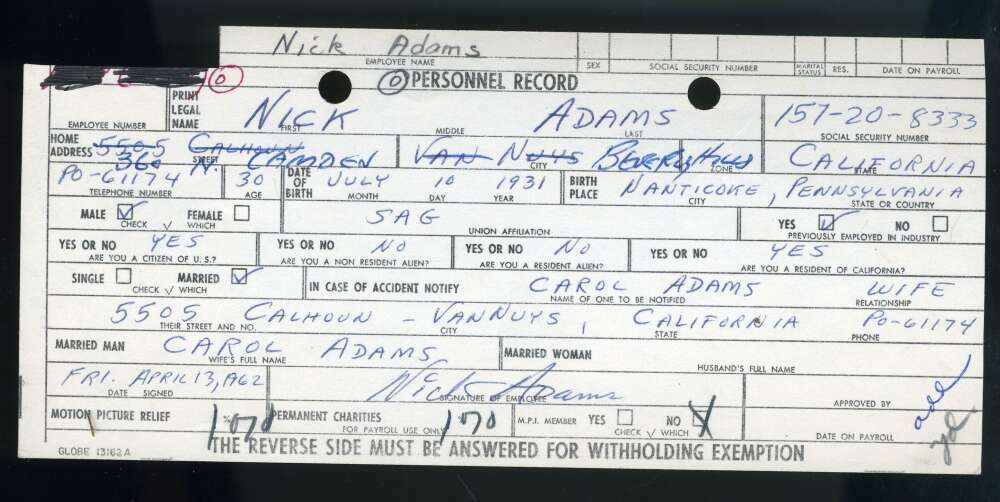 Nick Adams
EMPLOYEE NAME SEX SOCIAL SECURITY NUMBER MARITAL STATUS RES. DATE ON PAYROLL
O O PERSONNEL RECORD
PRINT LEGAL NAME NICK ADAMS 157-20-8333
EMPLOYEE NUMBER FIRST MIDDLE LAST SOCIAL SECURITY NUMBER
HOME ADDRESS 5505 CALHOUN VAN NUYS BEVERLY HILLS CALIFORNIA
360 N. CAMDEN
STREET CITY ZONE STATE
PO-61174 30 DATE OF BIRTH JULY 10 1931 BIRTH PLACE NANTICOKE, PENNSYLVANIA
TELEPHONE NUMBER AGE MONTH DAY YEAR CITY STATE OR COUNTRY
MALE FEMALE SAG YES NO
CHECK √ WHICH UNION AFFILIATION PREVIOUSLY EMPLOYED IN INDUSTRY
YES OR NO YES YES OR NO NO YES OR NO NO YES OR NO YES
ARE YOU A CITIZEN OF U.S.? ARE YOU A NON RESIDENT ALIEN? ARE YOU A RESIDENT ALIEN? ARE YOU A RESIDENT OF CALIFORNIA?
SINGLE MARRIED IN CASE OF ACCIDENT NOTIFY CAROL ADAMS WIFE
CHECK √ WHICH NAME OF ONE TO BE NOTIFIED RELATIONSHIP
5505 CALHOUN - VAN NUYS, CALIFORNIA PO-61174
THEIR STREET AND NO. CITY STATE PHONE
MARRIED MAN CAROL ADAMS MARRIED WOMAN
WIFE'S FULL NAME HUSBAND'S FULL NAME
FRI. APRIL 13, 1962 Nick Adams
DATE SIGNED SIGNATURE OF EMPLOYEE APPROVED BY
MOTION PICTURE RELIEF 1% PERMANENT CHARITIES 1% M.P.I. MEMBER YES NO X
FOR PAYROLL USE ONLY CHECK √ WHICH DATE ON PAYROLL
THE REVERSE SIDE MUST BE ANSWERED FOR WITHHOLDING EXEMPTION
GLOBE 13162A